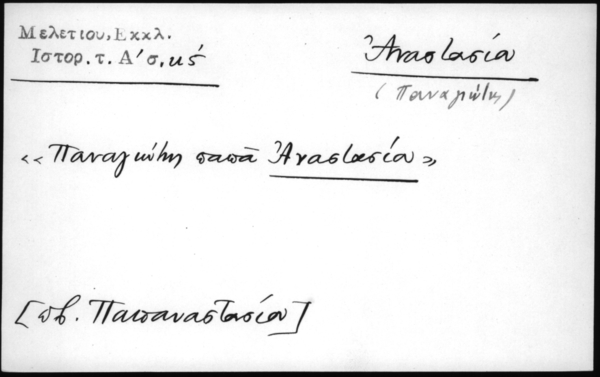 Μελετίου, Εκκλ.
Ιστορ. τ. Α' σ, κς́
Ἀναστασία
(Παναγιώτης)
«Παναγιώτης παπᾶ Ἀναστασία»
[πβ. Παπαναστασίου]